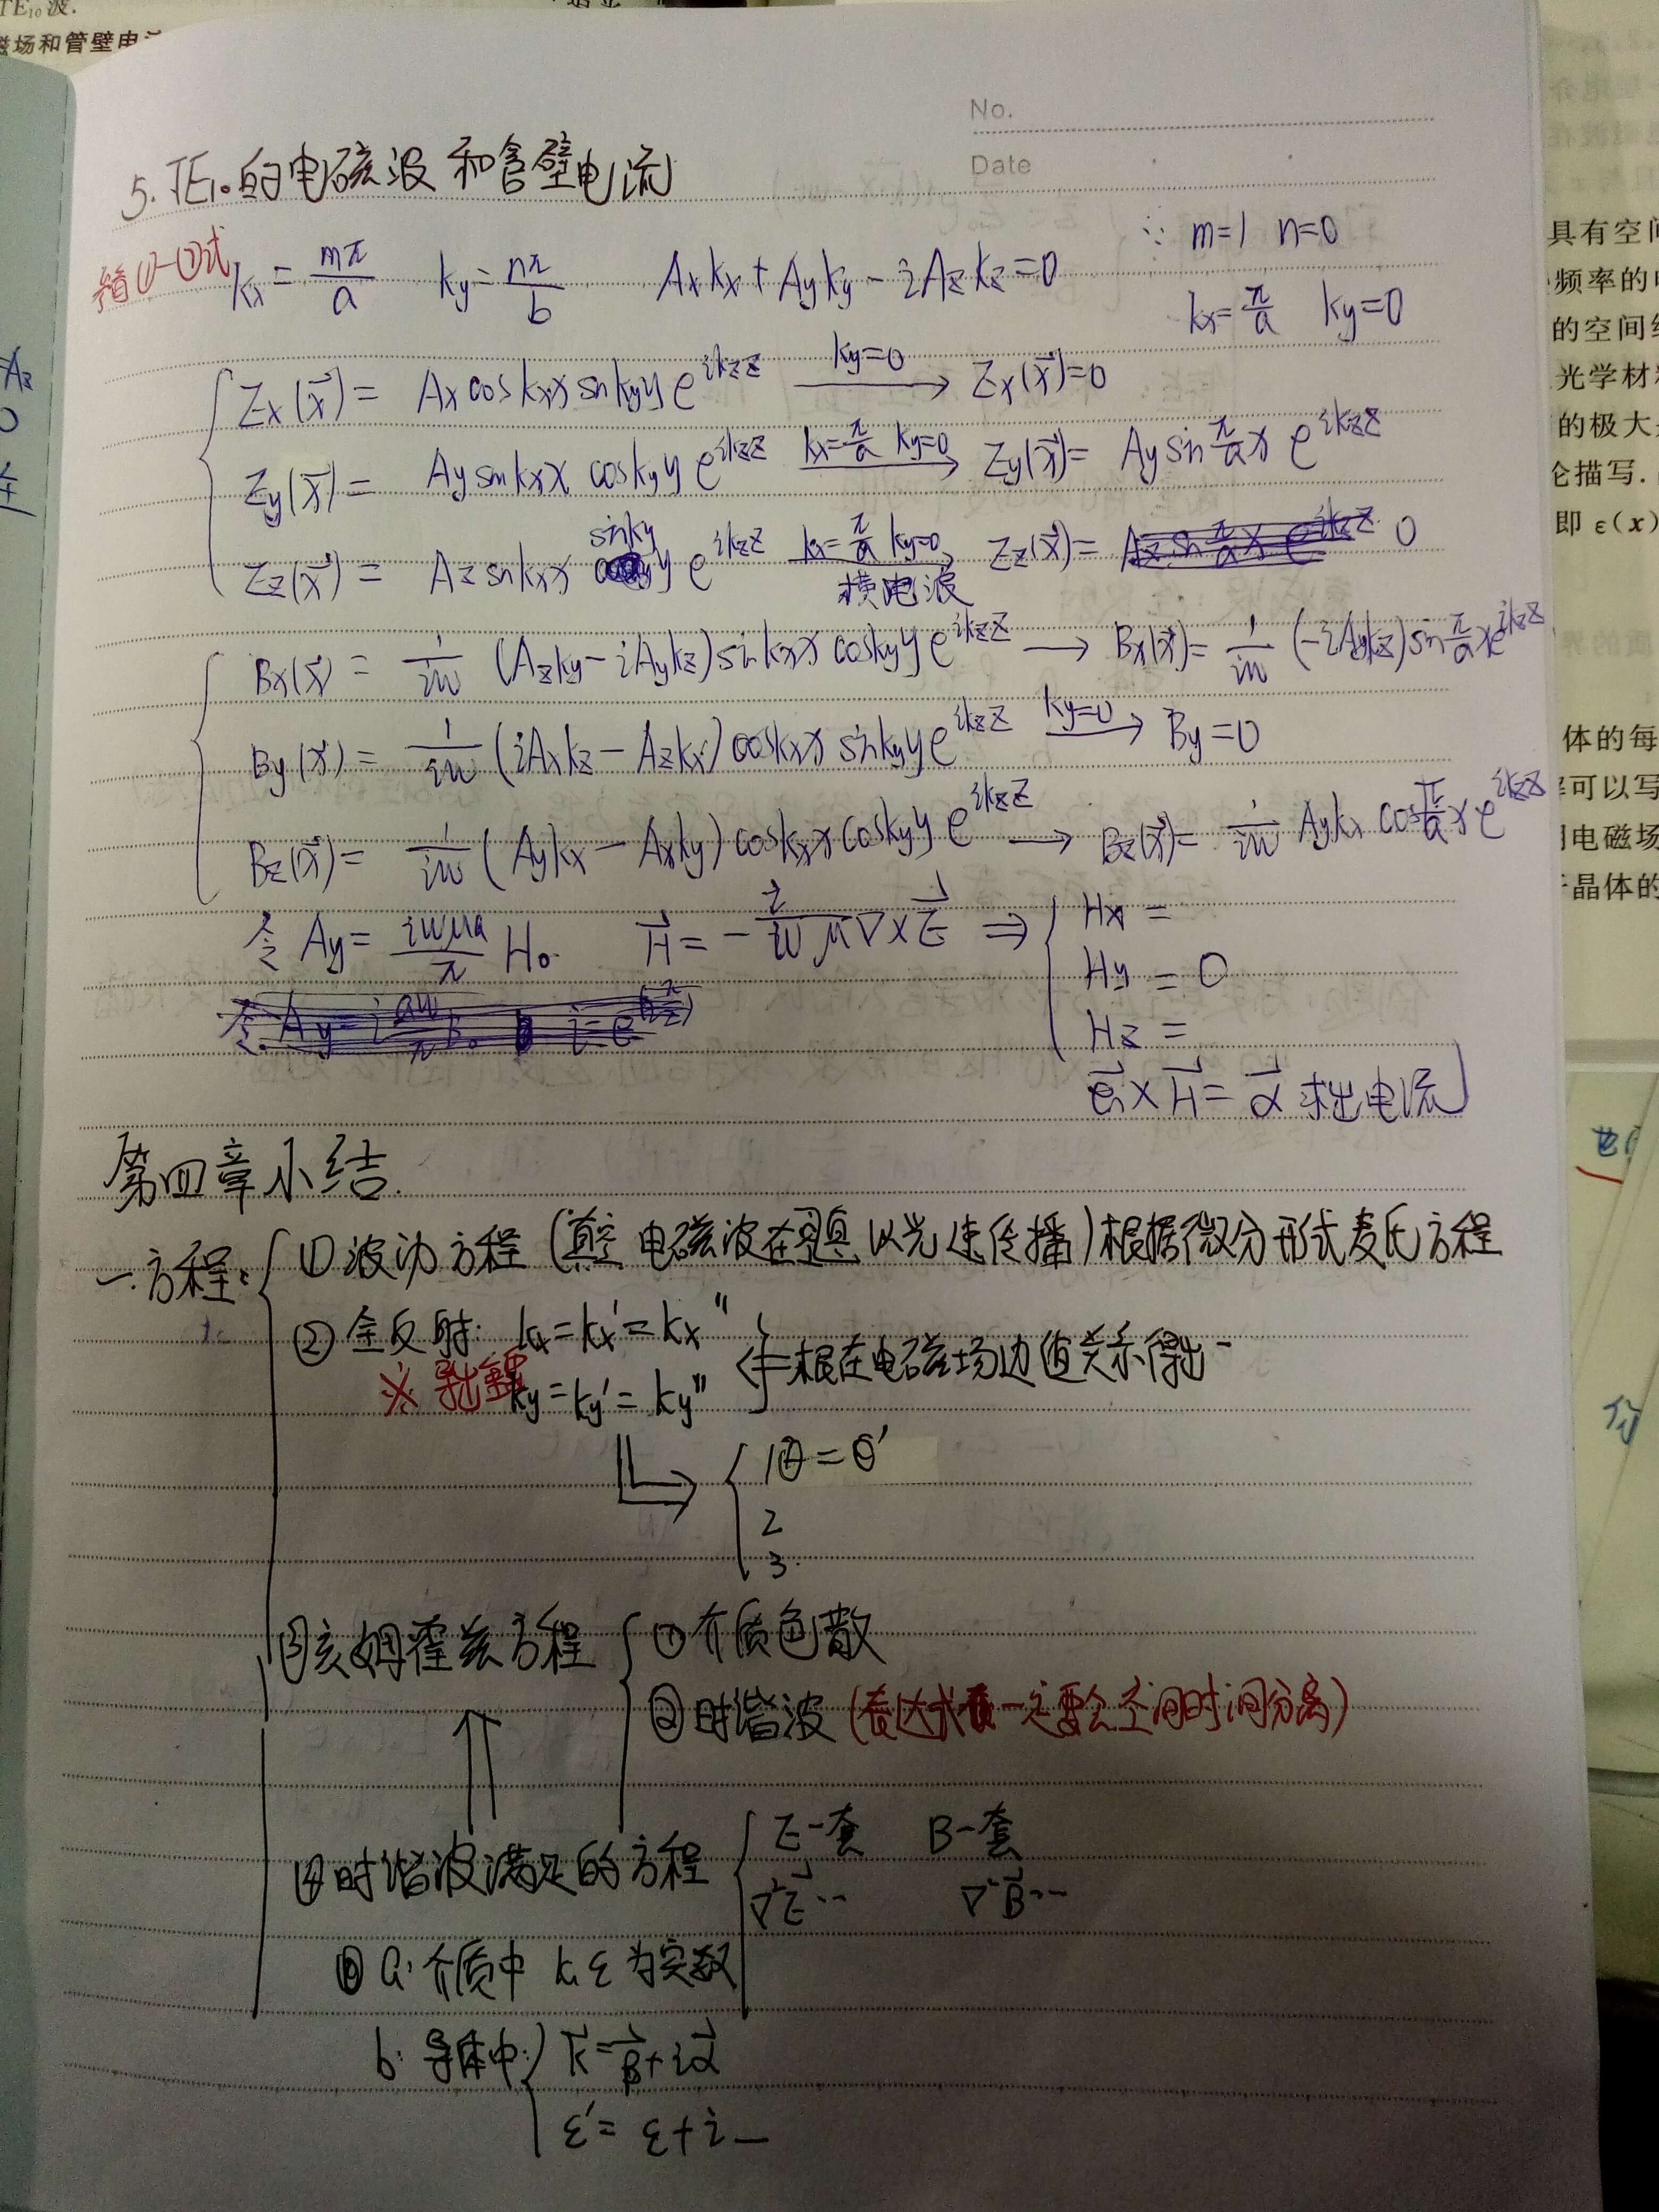 TE₁₀波.
磁场和管壁电流
No.
Date
5. TE₁₀的电磁波和管壁电流
kx = mπ/a  ky = nπ/b  Axkx + Ayky - iAzkz = 0  ∵ m=1 n=0
kx = π/a  ky=0
Ex(x⃗) = Ax cos kxx sin kyy e^{ikzz} —ky=0→ Ex(x⃗)=0
Ey(x⃗) = Ay sin kxx cos kyy e^{ikzz} —kx=π/a ky=0→ Ey(x⃗) = Ay sin π/a x e^{ikzz}
Ez(x⃗) = Az sin kxx sin kyy e^{ikzz} —kx=π/a ky=0→ Ez(x⃗) = 0
横电波
Bx(x⃗) = 1/iw (Azky - iAykz) sin kxx cos kyy e^{ikzz} → Bx(x⃗) = 1/iw (-iAykz) sin π/a x e^{ikzz}
By(x⃗) = 1/iw (iAxkz - Azkx) cos kxx sin kyy e^{ikzz} —ky=0→ By=0
Bz(x⃗) = 1/iw (Aykx - Axky) cos kxx cos kyy e^{ikzz} → Bz(x⃗) = 1/iw Aykx cos π/a x e^{ikzz}
令 Ay = iwμa/π H₀.  H⃗ = - i/wμ ∇×E⃗ ⇒ Hx =
Hy = 0
Hz =
e⃗n × H⃗ = α⃗ 求出电流
第四章小结.
一.方程:
① 波动方程 (真空 电磁波在 以光速传播) 根据微分形式麦氏方程
② 全反射: kx = kx' = kx''
ky = ky' = ky'' ⇐ 根在电磁场边值关系得出
1 θ = θ'
2
3.
③ 亥姆霍兹方程 ① 介质色散
② 时谐波 (表达式 一定要会空间时间分离)
④ 时谐波满足的方程 E一套 B一套
∇²E⃗ ··· ∇²B⃗ ···
a: 介质中 k, ε 为实数
b: 导体中: k⃗ = β⃗ + iα⃗
ε' = ε + i
具有空间
频率的
的空间
光学材
的极大
论描写.
即 ε(x)
体的每
可以写
电磁场
晶体的
分